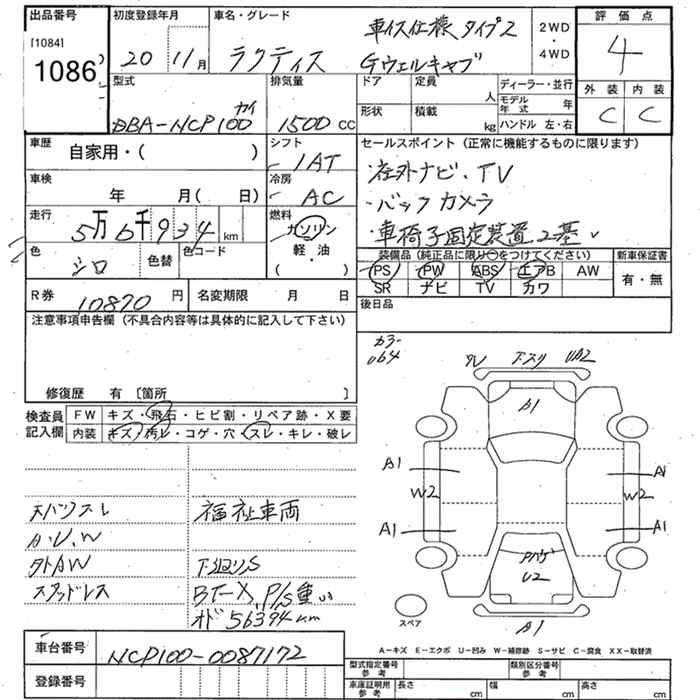 出品番号 初度登録年月 車名・グレード 車イス仕様 タイプ2 2WD・4WD 評価点
[1084]
1086 20 11月 ラクティス Gウェルキャブ 4
型式 排気量 ドア 定員 人 ディーラー・並行 外装 内装
DBA-NCP100 1500cc 形状 積載 kg モデル年式 年 C C
ハンドル 左・右
車歴 自家用・( ) シフト IAT セールスポイント (正常に機能するものに限ります)
車検 年 月( 日) 冷房 AC 社外ナビ・TV
走行 5万6千934km 燃料 ガソリン ・バックカメラ
軽・油 ・車椅子固定装置2基
色 シロ 色替 色コード ( ) 装備品 (純正品に限り○をつけてください) 新車保証書
PS PW ABS エアB AW 有・無
R券 10870円 名変期限 月 日 SR ナビ TV カワ
後日品
注意事項申告欄 (不具合内容等は具体的に記入して下さい)
カラー
064
修復歴 有 [箇所 ]
下スリ
A1
検査員記入欄 FW キズ・飛石・ヒビ割・リペア跡・X要
内装 キズ・汚レ・コゲ・穴・スレ・キレ・破レ
A1 A1
W2 W2
A1 A1
福祉車両
U2
A1
スペア
オド56394km
A-キズ E-エクボ U-凹み W-補修跡 S-サビ C-腐食 XX-取替済
車台番号 NCP100-0087172
型式指定番号 参考 類別区分番号 参考
登録番号
車庫証明用 参考 長さ cm 幅 cm 高さ cm